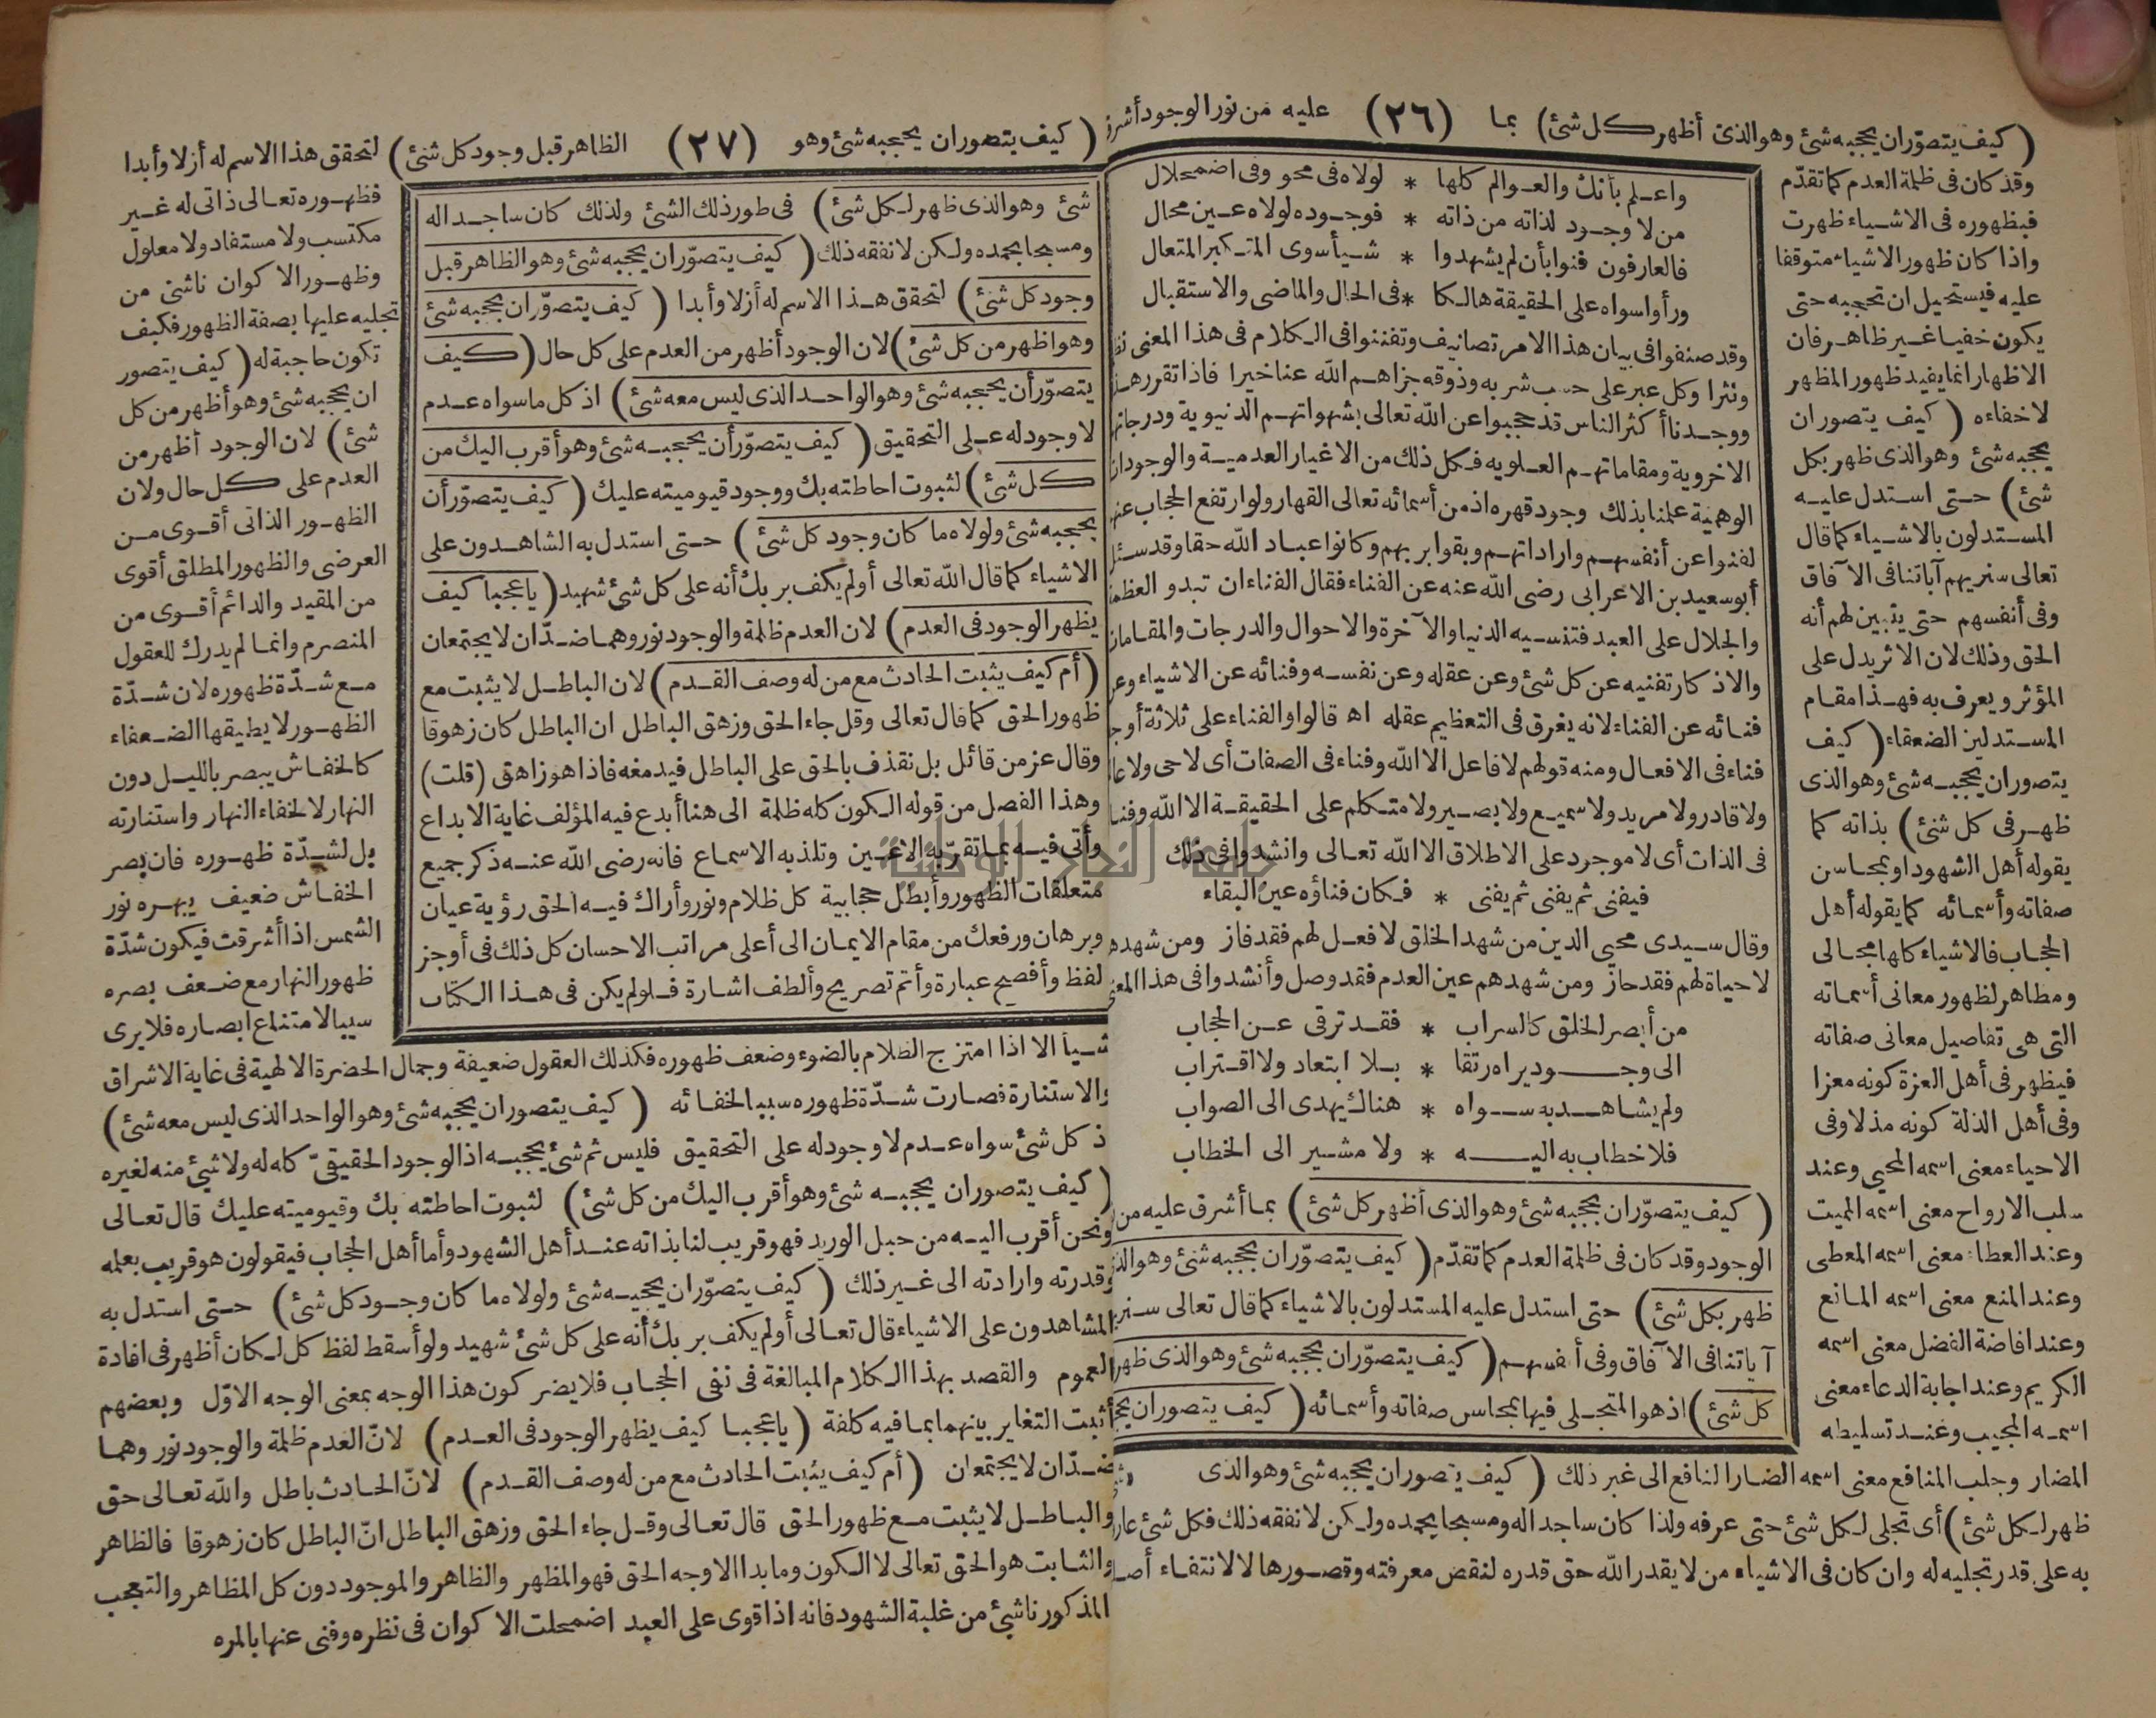 (كيف يتصوّر ان يحجبه شئ وهو الذى أظهر كل شئ) بما (٢٦) عليه من نور الوجود أشرق
وقد كان فى ظلمة العدم كما تقدّم
فبظهوره فى الاشياء ظهرت
واذا كان ظهور الاشياء متوقفا
عليه فيستحيل ان تحجبه حتى
يكون خفيا غير ظاهر فان
الاظهار انما يفيد ظهور المظهر
لا خفاءه (كيف يتصور ان
يحجبه شئ وهو الذى ظهر بكل
شئ) حتى استدل عليه
المستدلون بالاشياء كما قال
تعالى سنريهم آياتنا فى الآفاق
وفى أنفسهم حتى يتبين لهم أنه
الحق وذلك لان الاثر يدل على
المؤثر ويعرف به فهذا مقام
المستدلين الضعفاء (كيف
يتصور ان يحجبه شئ وهو الذى
ظهر فى كل شئ) بذاته كما
يقوله أهل الشهود او بمحاسن
صفاته وأسمائه كما يقوله أهل
الحجاب فالاشياء كلها مجالى
ومظاهر لظهور معانى أسمائه
التى هى تفاصيل معانى صفاته
فيظهر فى أهل العزة كونه معزا
وفى أهل الذلة كونه مذلا وفى
الاحياء معنى اسمه المحيى وعند
سلب الارواح معنى اسمه المميت
وعند العطاء معنى اسمه المعطى
وعند المنع معنى اسمه المانع
وعند افاضة الفضل معنى اسمه
الكريم وعند اجابة الدعاء معنى
اسمه المجيب وعند تسليطه
المضار وجلب المنافع معنى اسمه الضار النافع الى غير ذلك (كيف يتصور ان يحجبه شئ وهو الذى
ظهر لكل شئ) أى تجلى لكل شئ حتى عرفه ولذا كان ساجدا له ومسبحا بحمده ولكن لا نفقه ذلك فكل شئ عارف
به على قدر تجليه له وان كان فى الاشياء من لا يقدر الله حق قدره لنقض معرفته وقصورها لا لانتفاء أصلها
واعلم بأنك والعوالم كلها * لولاه فى محو وفى اضمحلال
من لا وجود لذاته من ذاته * فوجوده لولاه عين محال
فالعارفون فنوا بأن لم يشهدوا * شيأ سوى المتكبر المتعال
ورأوا سواه على الحقيقة هالكا * فى الحال والماضى والاستقبال
وقد صنفوا فى بيان هذا الامر تصانيف وتفننوا فى الكلام فى هذا المعنى نظما
ونثرا وكل عبر على حسب شربه وذوقه جزاهم الله عنا خيرا فاذا تقرر هذا
ووجدنا أكثر الناس قد حجبوا عن الله تعالى بشهواتهم الدنيوية ودرجاتهم
الاخروية ومقاماتهم العلويه فكل ذلك من الاغيار العدمية والوجودات
الوهمية علمنا بذلك وجود قهره اذ من أسمائه تعالى القهار ولو ارتفع الحجاب عنهم
لفنوا عن أنفسهم واراداتهم وبقوا بربهم وكانوا عباد الله حقا وقد سئل
أبو سعيد بن الاعرابى رضى الله عنه عن الفناء فقال الفناء ان تبدو العظمة
والجلال على العبد فتنسيه الدنيا والآخرة والاحوال والدرجات والمقامات
والاذكار تفنيه عن كل شئ وعن عقله وعن نفسه وفنائه عن الاشياء وعن
فنائه عن الفناء لانه يغرق فى التعظيم عقله اه قالوا والفناء على ثلاثة أوجه
فناء فى الافعال ومنه قولهم لا فاعل الا الله وفناء فى الصفات أى لا حى ولا عالم
ولا قادر ولا مريد ولا سميع ولا بصير ولا متكلم على الحقيقة الا الله وفناء
فى الذات أى لا موجود على الاطلاق الا الله تعالى وانشدوا فى ذلك
فيفنى ثم يفنى ثم يفنى * فكان فناؤه عين البقاء
وقال سيدى محيى الدين من شهد الخلق لا فعل لهم فقد فاز ومن شهدهم
لا حياة لهم فقد حاز ومن شهدهم عين العدم فقد وصل وأنشدوا فى هذا المعنى
من أبصر الخلق كالسراب * فقد ترقى عن الحجاب
الى وجود يراه رتقا * بلا ابتعاد ولا اقتراب
ولم يشاهد به سواه * هناك يهدى الى الصواب
فلا خطاب به اليه * ولا مشير الى الخطاب
(كيف يتصوّر ان يحجبه شئ وهو الذى أظهر كل شئ) بما أشرق عليه من
الوجود وقد كان فى ظلمة العدم كما تقدّم (كيف يتصوّر ان يحجبه شئ وهو الذى
ظهر بكل شئ) حتى استدل عليه المستدلون بالاشياء كما قال تعالى سنريهم
آياتنا فى الآفاق وفى أنفسهم (كيف يتصوّر ان يحجبه شئ وهو الذى ظهر
كل شئ) اذ هو المتجلى فيها بمحاسن صفاته وأسمائه (كيف يتصور ان يحجبه
(كيف يتصور ان يحجبه شئ وهو (٢٧) الظاهر قبل وجود كل شئ) لتحقق هذا الاسم له أزلا وأبدا
شئ وهو الذى ظهر لكل شئ) فى طور ذلك الشئ ولذلك كان ساجدا له
ومسبحا بحمده ولكن لا نفقه ذلك (كيف يتصوّر ان يحجبه شئ وهو الظاهر قبل
وجود كل شئ) لتحقق هذا الاسم له أزلا وأبدا (كيف يتصوّر ان يحجبه شئ
وهو اظهر من كل شئ) لان الوجود أظهر من العدم على كل حال (كيف
يتصوّر أن يحجبه شئ وهو الواحد الذى ليس معه شئ) اذ كل ما سواه عدم
لا وجود له على التحقيق (كيف يتصوّر أن يحجبه شئ وهو أقرب اليك من
كل شئ) لثبوت احاطته بك ووجود قيوميته عليك (كيف يتصوّر أن
يحجبه شئ ولولاه ما كان وجود كل شئ) حتى استدل به الشاهدون على
الاشياء كما قال الله تعالى أولم يكف بربك أنه على كل شئ شهيد (يا عجبا كيف
يظهر الوجود فى العدم) لان العدم ظلمة والوجود نور وهما ضدّان لا يجتمعان
(أم كيف يثبت الحادث مع من له وصف القدم) لان الباطل لا يثبت مع
ظهور الحق كما قال تعالى وقل جاء الحق وزهق الباطل ان الباطل كان زهوقا
وقال عز من قائل بل نقذف بالحق على الباطل فيدمغه فاذا هو زاهق (قلت)
وهذا الفصل من قوله الكون كله ظلمة الى هنا أبدع فيه المؤلف غاية الابداع
وأتى فيه بما تقر به الاعين وتلذ به الاسماع فانه رضى الله عنه ذكر جميع
متعلقات الظهور وأبطل حجابية كل ظلام ونور وأراك فيه الحق رؤية عيان
وبرهان ورفعك من مقام الايمان الى أعلى مراتب الاحسان كل ذلك فى أوجز
لفظ وأفصح عبارة وأتم تصريح وألطف اشارة فلو لم يكن فى هذا الكتاب
فظهوره تعالى ذاتى له غير
مكتسب ولا مستفاد ولا معلول
وظهور الاكوان ناشئ من
تجليه عليها بصفة الظهور فكيف
تكون حاجبة له (كيف يتصور
ان يحجبه شئ وهو أظهر من كل
شئ) لان الوجود أظهر من
العدم على كل حال ولان
الظهور الذاتى أقوى من
العرضى والظهور المطلق أقوى
من المقيد والدائم أقوى من
المنصرم وانما لم يدرك للعقول
مع شدّة ظهوره لان شدّة
الظهور لا يطيقها الضعفاء
كالخفاش يبصر بالليل دون
النهار لا لخفاء النهار واستنارته
بل لشدّة ظهوره فان بصر
الخفاش ضعيف يبهره نور
الشمس اذا أشرقت فيكون شدّة
ظهور النهار مع ضعف بصره
سببا لامتناع ابصاره فلا يرى
شيأ الا اذا امتزج الظلام بالضوء وضعف ظهوره فكذلك العقول ضعيفة وجمال الحضرة الالهية فى غاية الاشراق
والاستنارة فصارت شدّة ظهوره سببا لخفائه (كيف يتصور ان يحجبه شئ وهو الواحد الذى ليس معه شئ)
اذ كل شئ سواه عدم لا وجود له على التحقيق فليس ثم شئ يحجبه اذ الوجود الحقيقىّ كله له ولا شئ منه لغيره
(كيف يتصور ان يحجبه شئ وهو أقرب اليك من كل شئ) لثبوت احاطته بك وقيوميته عليك قال تعالى
ونحن أقرب اليه من حبل الوريد فهو قريب لنا بذاته عند أهل الشهود وأما أهل الحجاب فيقولون هو قريب بعلمه
وقدرته وارادته الى غير ذلك (كيف يتصوّر ان يحجبه شئ ولولاه ما كان وجود كل شئ) حتى استدل به
المشاهدون على الاشياء قال تعالى أولم يكف بربك أنه على كل شئ شهيد ولو أسقط لفظ كل لكان أظهر فى افادة
العموم والقصد بهذا الكلام المبالغة فى نفى الحجاب فلا يضر كون هذا الوجه بمعنى الوجه الاوّل وبعضهم
أثبت التغاير بينهما بما فيه كلفة (يا عجبا كيف يظهر الوجود فى العدم) لانّ العدم ظلمة والوجود نور وهما
ضدّان لا يجتمعان (أم كيف يثبت الحادث مع من له وصف القدم) لانّ الحادث باطل والله تعالى حق
والباطل لا يثبت مع ظهور الحق قال تعالى وقل جاء الحق وزهق الباطل انّ الباطل كان زهوقا فالظاهر
والثابت هو الحق تعالى لا الكون وما بدا الا وجه الحق فهو المظهر والظاهر والموجود دون كل المظاهر والتعجب
المذكور ناشئ من غلبة الشهود فانه اذا قوى على العبد اضمحلت الاكوان فى نظره وفنى عنها بالمره
جامعة النجاح الوطنية